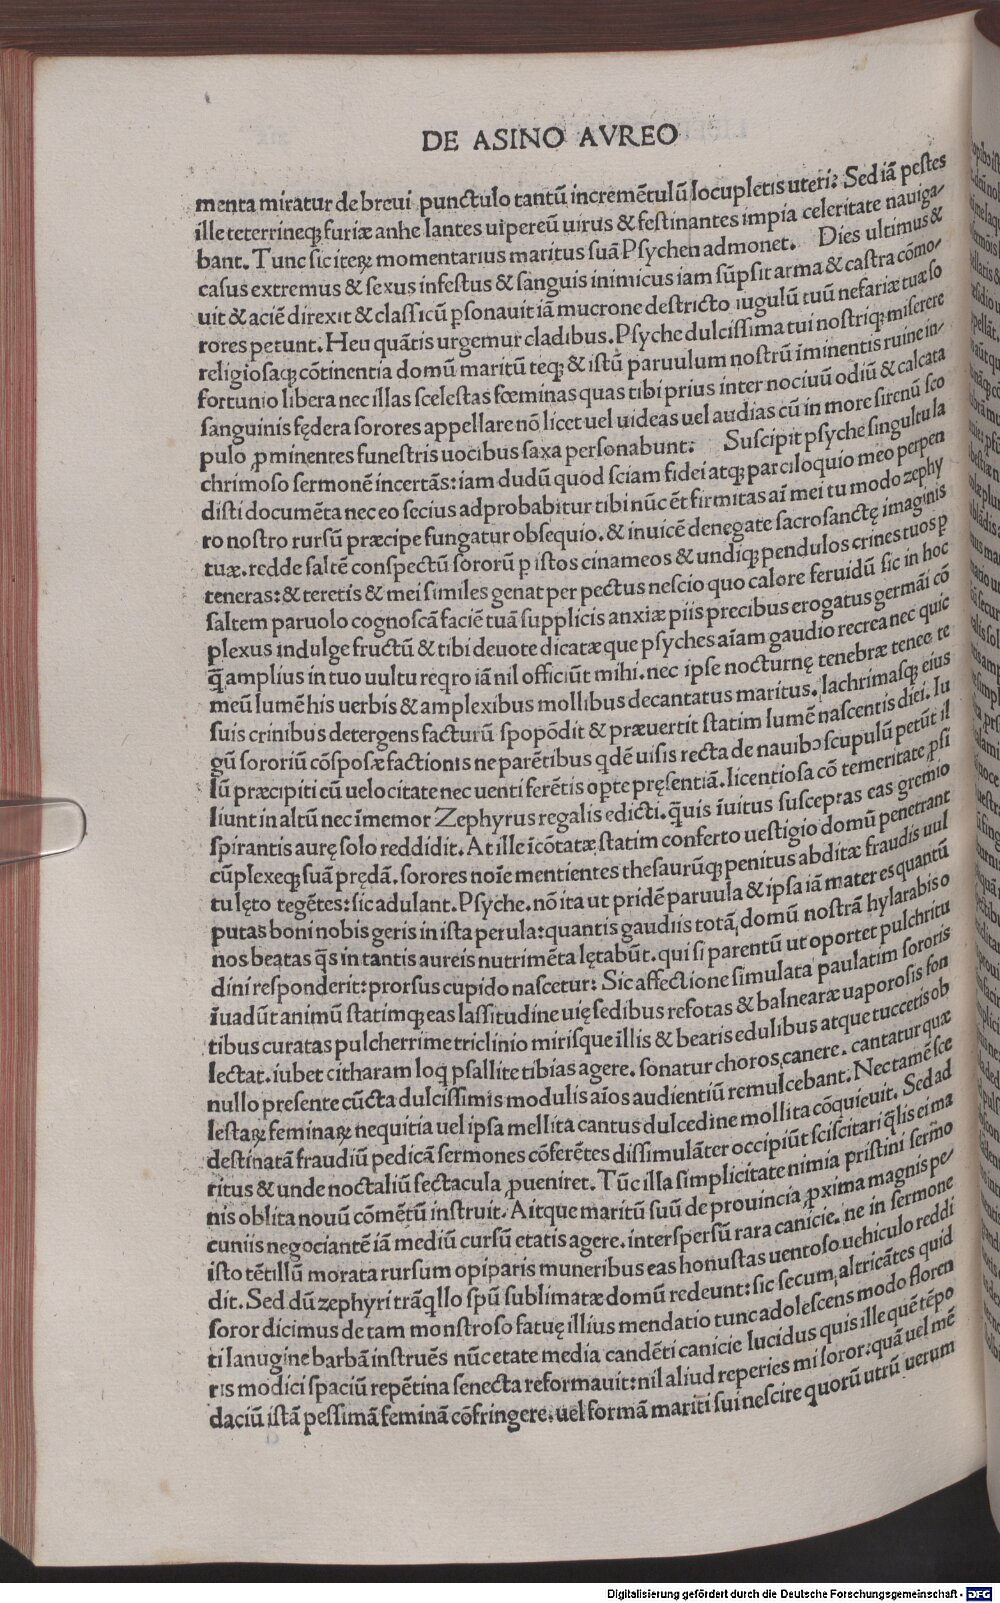 DE ASINO AVREO
menta miratur de breui punctulo tantū incremētulū locupletis uteri: Sed iā pestes
ille teterrineq; furiæ anhe lantes uipereū uirus & festinantes impia celeritate nauiga-
bant. Tunc sic iteꝝ momentarius maritus suā Psychen admonet. Dies ultimus &
casus extremus & sexus infestus & sanguis inimicus iam sūpsit arma & castra cōmo-
uit & aciē direxit & classicū ꝑsonauit iā mucrone destricto iugulū tuū nefariæ tuæ so
rores petunt. Heu quātis urgemur cladibus. Psyche dulcissima tui nostriq; miserere
religiosaq; cōtinentia domū maritū teq; & istū paruulum nostrū iminentis ruine in-
fortunio libera nec illas scelestas fœminas quas tibi prius inter nociuū odiū & calcata
sanguinis fędera sorores appellare nō licet uel uideas uel audias cū in more sirenū sco
pulo ꝓminentes funestris uocibus saxa personabunt: Suscipit psyche singultu la
chrimoso sermonē incertās: iam dudū quod sciam fidei atq; parciloquio meo perpen
disti documēta nec eo secius adprobabitur tibi nūc ēt firmitas aī mei tu modo zephy
ro nostro rursū præcipe fungatur obsequio. & inuicē denegate sacrosanctę imaginis
tuæ. redde saltē conspectū sororū ꝑ istos cinameos & undiq; pendulos crines tuos ꝑ
teneras: & teretis & mei similes genat per pectus nescio quo calore feruidū sic in hoc
saltem paruolo cognoscā faciē tuā supplicis anxiæ piis precibus erogatus germāi cō
plexus indulge fructū & tibi deuote dicatæ que psyches aīam gaudio recrea nec quic
q̄ amplius in tuo uultu reqro iā nil officiūt mihi. nec ipse nocturnę tenebræ teneo te
meū lumē his uerbis & amplexibus mollibus decantatus maritus. lachrimasq; eius
suis crinibus detergens facturū spopōdit & præuertit statim lumē nascentis diei. Iu
gū sororiū cōsposæ factionis ne parētibus qdē uisis recta de nauibꝰ scupulū petūt il
lū præcipiti cū uelocitate nec uenti ferētis opte pręsentiā. licentiosa cō temeritate ꝓsi
liunt in altū nec īmemor Zephyrus regalis edicti. q̄uis īuitus susceptas eas gremio
spirantis aurę solo reddidit. At ille īcōtatæ statim conferto uestigio domū penetrant
cūplexeq; suā prędā. sorores noīe mentientes thesaurūq; penitus abditæ fraudis uul
tu lęto tegētes: sic adulant. Psyche. nō ita ut pridē paruula & ipsa iā mater es quantū
putas boni nobis geris in ista perula: quantis gaudiis totā domū nostrā hylarabis o
nos beatas q̄s in tantis aureis nutrimēta lętabūt. qui si parentū ut oportet pulchritu
dini responderit: prorsus cupido nascetur: Sic affectione simulata paulatim sororis
īuadūt animū statimq; eas lassitudine uię sedibus refotas & balnearæ uaporosis fon
tibus curatas pulcherrime triclinio mirisque illis & beatis edulibus atque tuccetis ob
lectat. iubet citharam loq psallite tibias agere. sonatur choros canere. cantatur quæ
nullo presente cūcta dulcissimis modulis aīos audientiū remulcebant. Nec tamē sce
lestaꝝ feminaꝝ nequitia uel ipsa mellita cantus dulcedine mollita cōquieuit. Sed ad
destinatā fraudiū pedicā sermones cōferētes dissimulāter occipiūt sciscitari q̄lis ei ma
ritus & unde noctaliū sectacula ꝓueniret. Tūc illa simplicitate nimia pristini sermo
nis oblita nouū cōmētū instruit. Aitque maritū suū de prouincia ꝓxima magnis pe-
cuniis negociantē iā mediū cursū etatis agere. interspersū rara canicie. ne in sermone
isto tētillū morata rursum opiparis muneribus eas honustas uentoso uehiculo reddi
dit. Sed dū zephyri trāqllo spū sublimatæ domū redeunt: sic secum altricātes quid
soror dicimus de tam monstroso fatuę illius mendatio tunc adolescens modo floren
ti lanugine barbā instruēs nūc etate media candēti canicie lucidus quis ille quē tēpo
ris modici spaciū repētina senecta reformauit: nil aliud reperies mi soror: quā uel mē
daciū istā pessimā feminā cōfringere. uel formā mariti sui nescire quorū utrū uerum
Digitalisierung gefördert durch die Deutsche Forschungsgemeinschaft - DFG